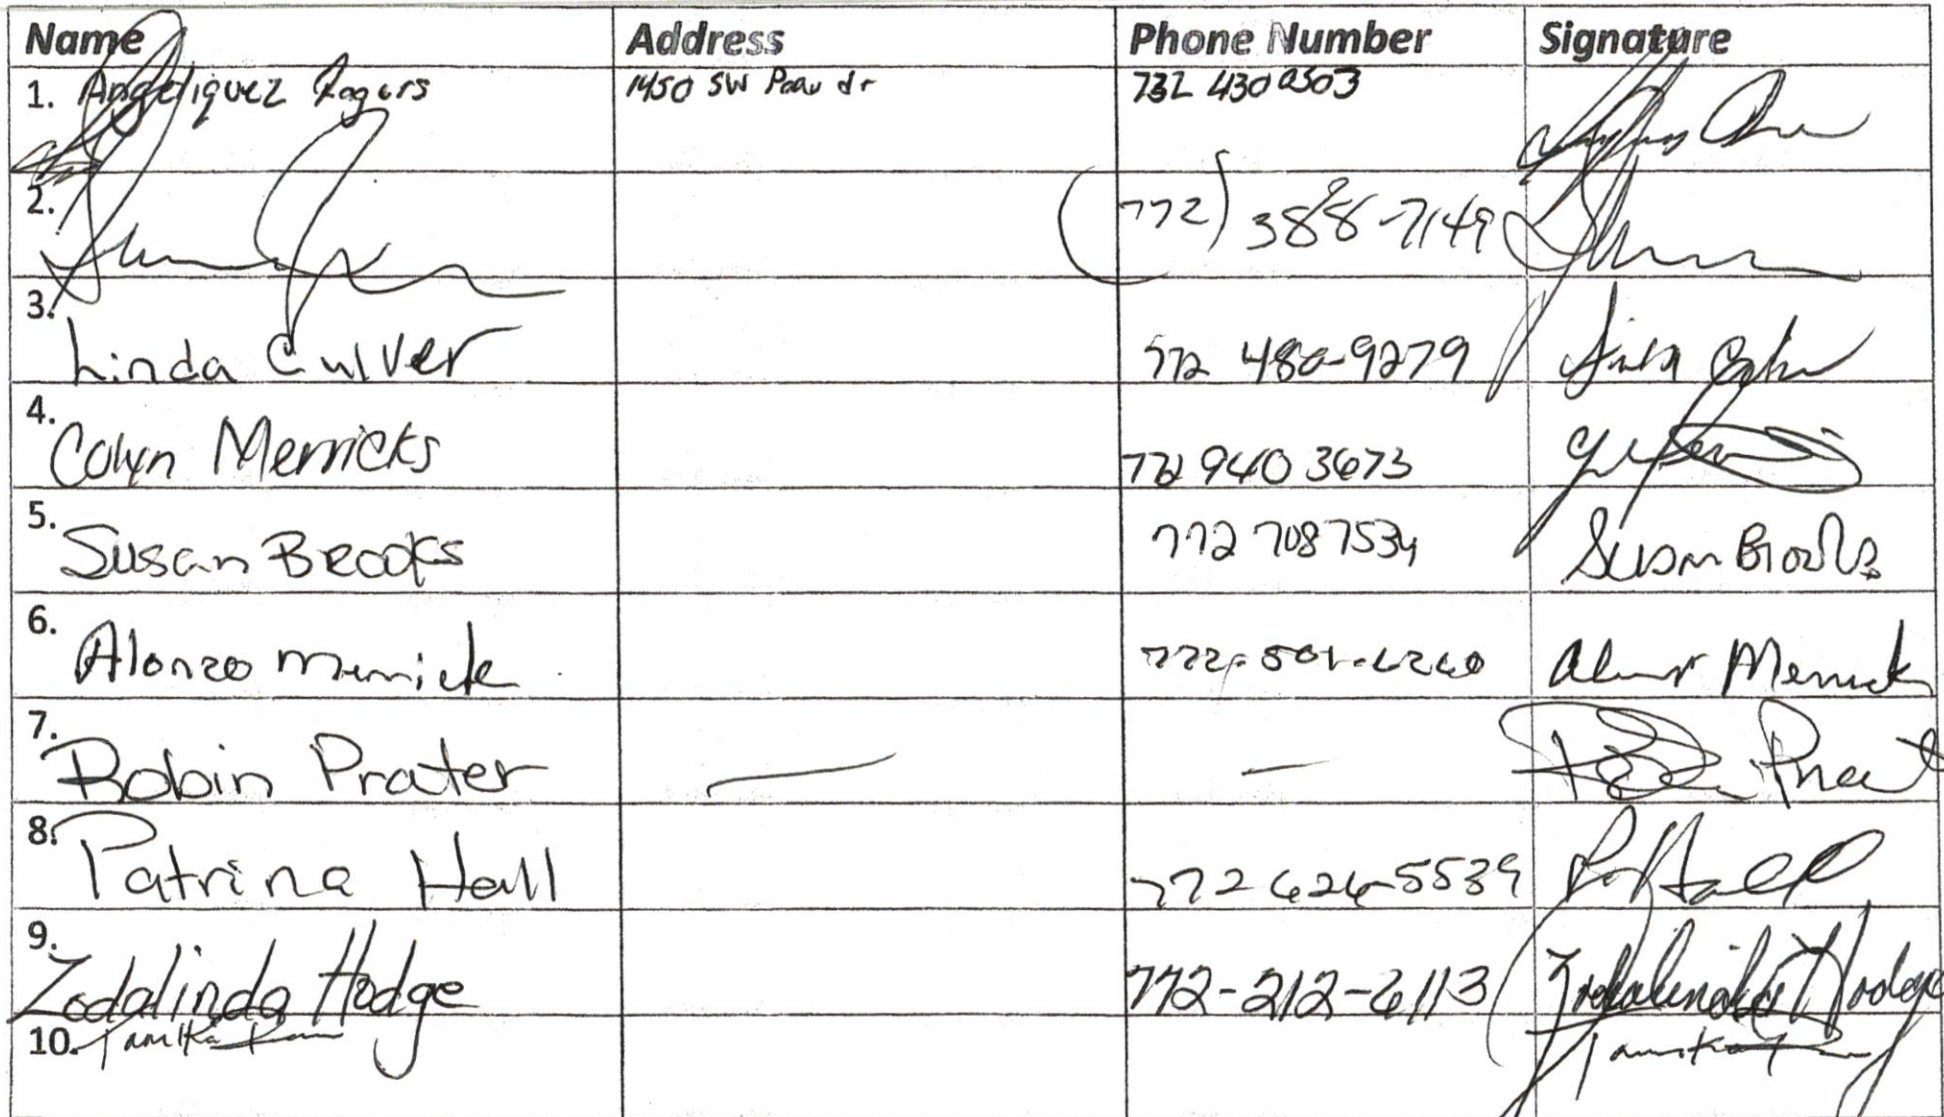 Name Address Phone Number Signature
1. Angeliquez Rogers 1450 SW dr 732 430 0303
2. (772) 388-7149
3. Linda Culver 772 480-9279
4. Colyn Merricks 772 940 3673
5. Susan Brooks 772 708 7534 Susan Brooks
6. Alonzo Merrick 772-501-6260 Merrick
7. Robin Prater — —
8. Patrina Hall 772 626-5539 P Hall
9. Zodalinda Hodge 772-212-6113 Zodalinda Hodge
10. Tamika Tamika